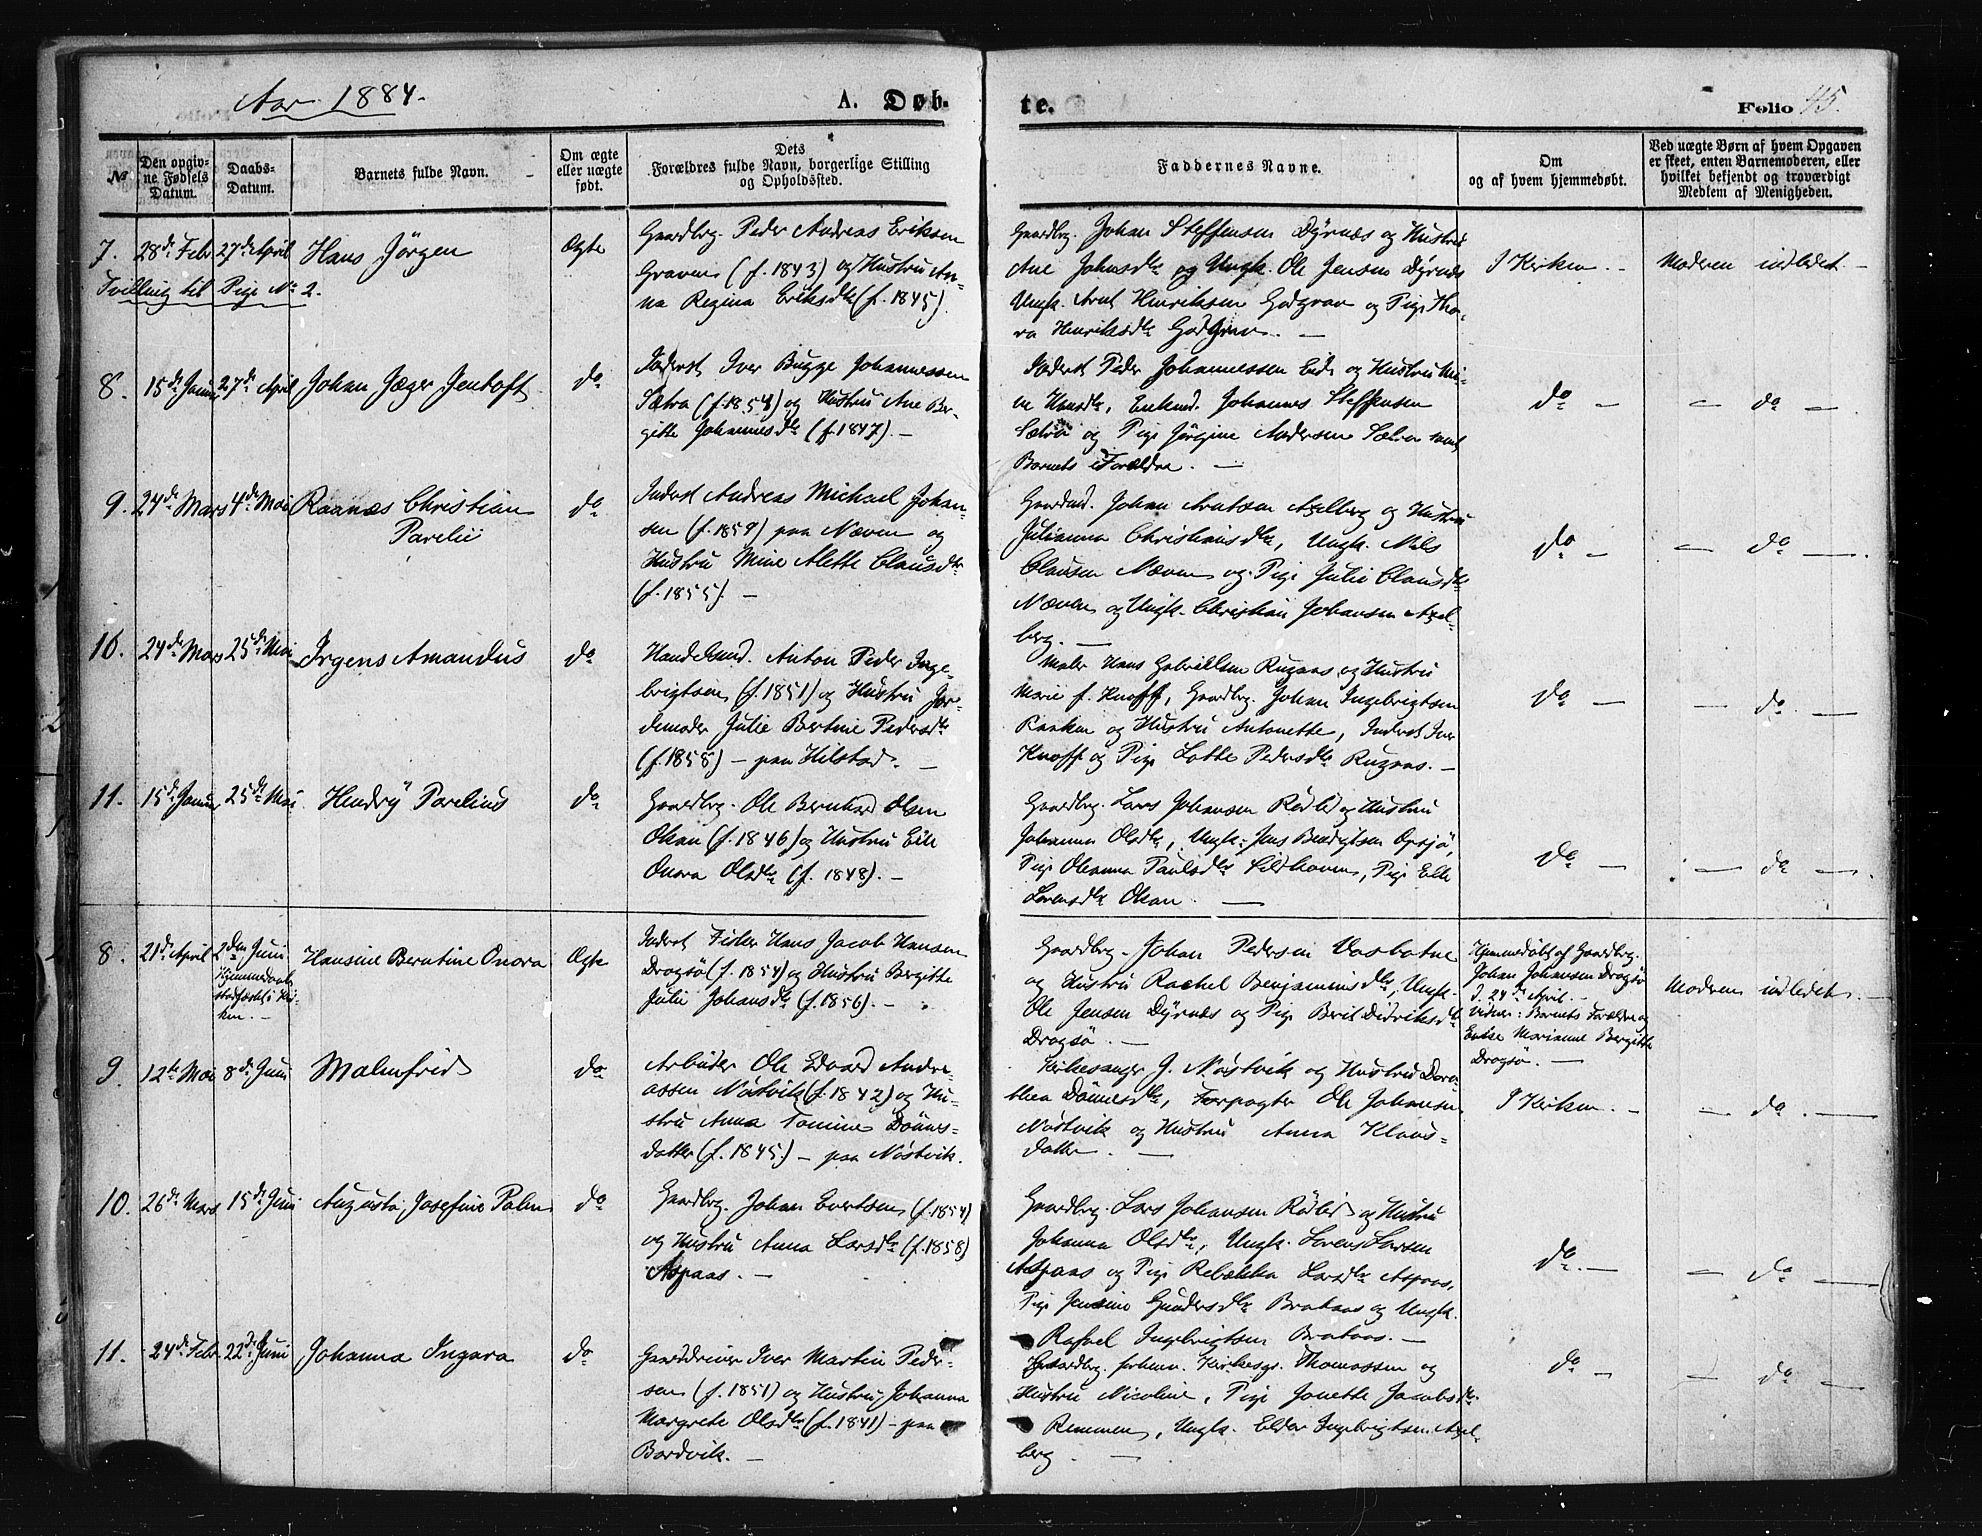 Aar 1884.
A. Døb-
te.
Folio 45.
No
Den opgiv-
ne Fødsels
Datum.
Daabs-
Datum.
Barnets fulde Navn.
Om ægte
eller uægte
født.
Dets
Forældres fulde Navn, borgerlige Stilling
og Opholdssted.
Faddernes Navne.
Om
og af hvem hjemmedøbt.
Ved uægte Børn af hvem Opgaven
er skeet, enten Barnemoderen, eller
hvilket bekjendt og troværdigt
Medlem af Menigheden.
7. 28de Febr 27de April Hans Jörgen Ægte
Tvilling til Pige No 2.
Gaardbrg. Peder Andreas Eriksen
Graven (f. 1843) og Hustru An-
na Regina Eriksdtr (f. 1845).
Gaardbrg. Johan Steffensen Dyrnæs og Hustru
Ane Johnsdtr og Ungk. Ole Jensen Dyrnæs
Ungk. Arnt Henriksen Godgrav og Pige Tho-
ra Henriksdtr Godgrav. —
I Kirken. —
Moderen indledet. —
8. 15de Januar 27de April Johan Jæger Jentoft do
Inderst Iver Bugge Johannessen
Sætra (f. 1854) og Hustru Ane Ber-
gitte Johannesdtr (f. 1847). —
Inderst Peder Johannessen Eide og Hustru
Hansdtr, Enkemd. Johannes Steffensen
Sætra og Pige Jörgine Andersen Sætra samt
Barnets Forældre. —
do —
— do —
9. 24de Mars 4de Mai Raanæs Christian do
Parelii
Inderst Andreas Michael Johan-
sen (f. 1859) paa Næven og
Hustru Mine Alette Clausdtr
(f. 1855). —
Gaardmd. Johan Arntsen Axelberg og Hustru
Julianna Christiansdtr, Ungk. Nils
Clausen Næven og Pige Julie Clausdtr
Næven og Ungk. Christian Johansen Axel-
berg. —
do —
— do —
10. 24de Mars 25de Mai Irgens Amandus do
Handelsmd. Anton Peder Inge-
brigtsen (f. 1851) og Hustru Jor-
demoder Julie Bertine Pedersdtr
(f. 1858) — paa Hilstad. —
Maler Hans Gabrielsen Rugaas og Hustru
Marie f. Knoff, Gaardbrg. Johan Ingebrigtsen
Raaken og Hustru Antonette, Inderst Iver
Knoff og Pige Lotte Pedersdtr Rugaas. —
do —
— do. —
11. 15de Januar 25de Mai Hendry Parelius do
Gaardbrg. Ole Bernhard Olsen
Olsan (f. 1846) og Hustru Ellen
Onora Olsdtr (f. 1848). —
Gaardbrg. Lars Johansen Rödli og Hustru
Johanna Olsdtr, Ungk. Jens Bendigtsen Opsjö,
Pige Oleanna Paulsdtr Sildhaven, Pige Elle
Lorensdtr Olsan. —
do —
— do —
8. 21de April 2den Juni Hansine Berntine Onora Ægte
Hjemmedaaben
stadfæstes i Kir-
ken. —
Inderst Fisker Hans Jacob Hansen
Dragsö (f. 1854) og Hustru Bergitte
Julie Johansdtr (f. 1856). —
Gaardbrg. Johan Pedersen Vasbotne
og Hustru Rachel Benjaminsdtr, Ungk.
Ole Jensen Dyrnæs og Pige Berit Didriksdtr
Dragsö. —
Hjemmedöbt af Gaardbrg.
Johan Johansen Dragsö
d. 24de April. —
Vidner: Barnets Forældre og
Enke Marianne Bergitte
Dragsö. —
Moderen indledet. —
9. 12te Mai 8de Juni Malmfrid do
Arbeider Ole Edvard Andre-
assen Nöstvik (f. 1842) og Hu-
stru Anna Tomine Dönnes-
datter (f. 1845.) — paa Nöstvik.
Kirkesanger J. Nöstvik og Hustru Doro-
thea Dönnesdtr, Forpagter Ole Johansen
Nöstvik og Hustru Anna Klaus-
datter. —
I Kirken. —
— do. —
10. 26de Mars 15de Juni Augusta Josefine Palm do
Gaardbrg. Johan Evertsen (f. 1854)
og Hustru Anna Larsdtr (f. 1858)
Aspaas. —
Gaardbrg. Lars Johansen Rödli og Hustru
Johanna Olsdtr, Ungk. Lorens Larsen
Aspaas og Pige Rebækka Larsdtr Aspaas,
Pige Jensine Gundersdtr Brataas og Ungk.
Rafael Ingebrigtsen Brataas. —
do. —
— do —
11. 24de Febr 22de Juni Johanna Ingara do
Gaarddriver Iver Martin Peder-
sen (f. 1851) og Hustru Johanna
Margrete Olsdtr (f. 1841) — paa
Bardvik. —
Gaardbrg. forhenv. Kirkesgr. Thomassen og
Hustru Nicoline, Pige Jonette Jacobsdtr
Remmen, Ungk. Eldar Ingebrigtsen Axel-
berg. —
do —
— do —